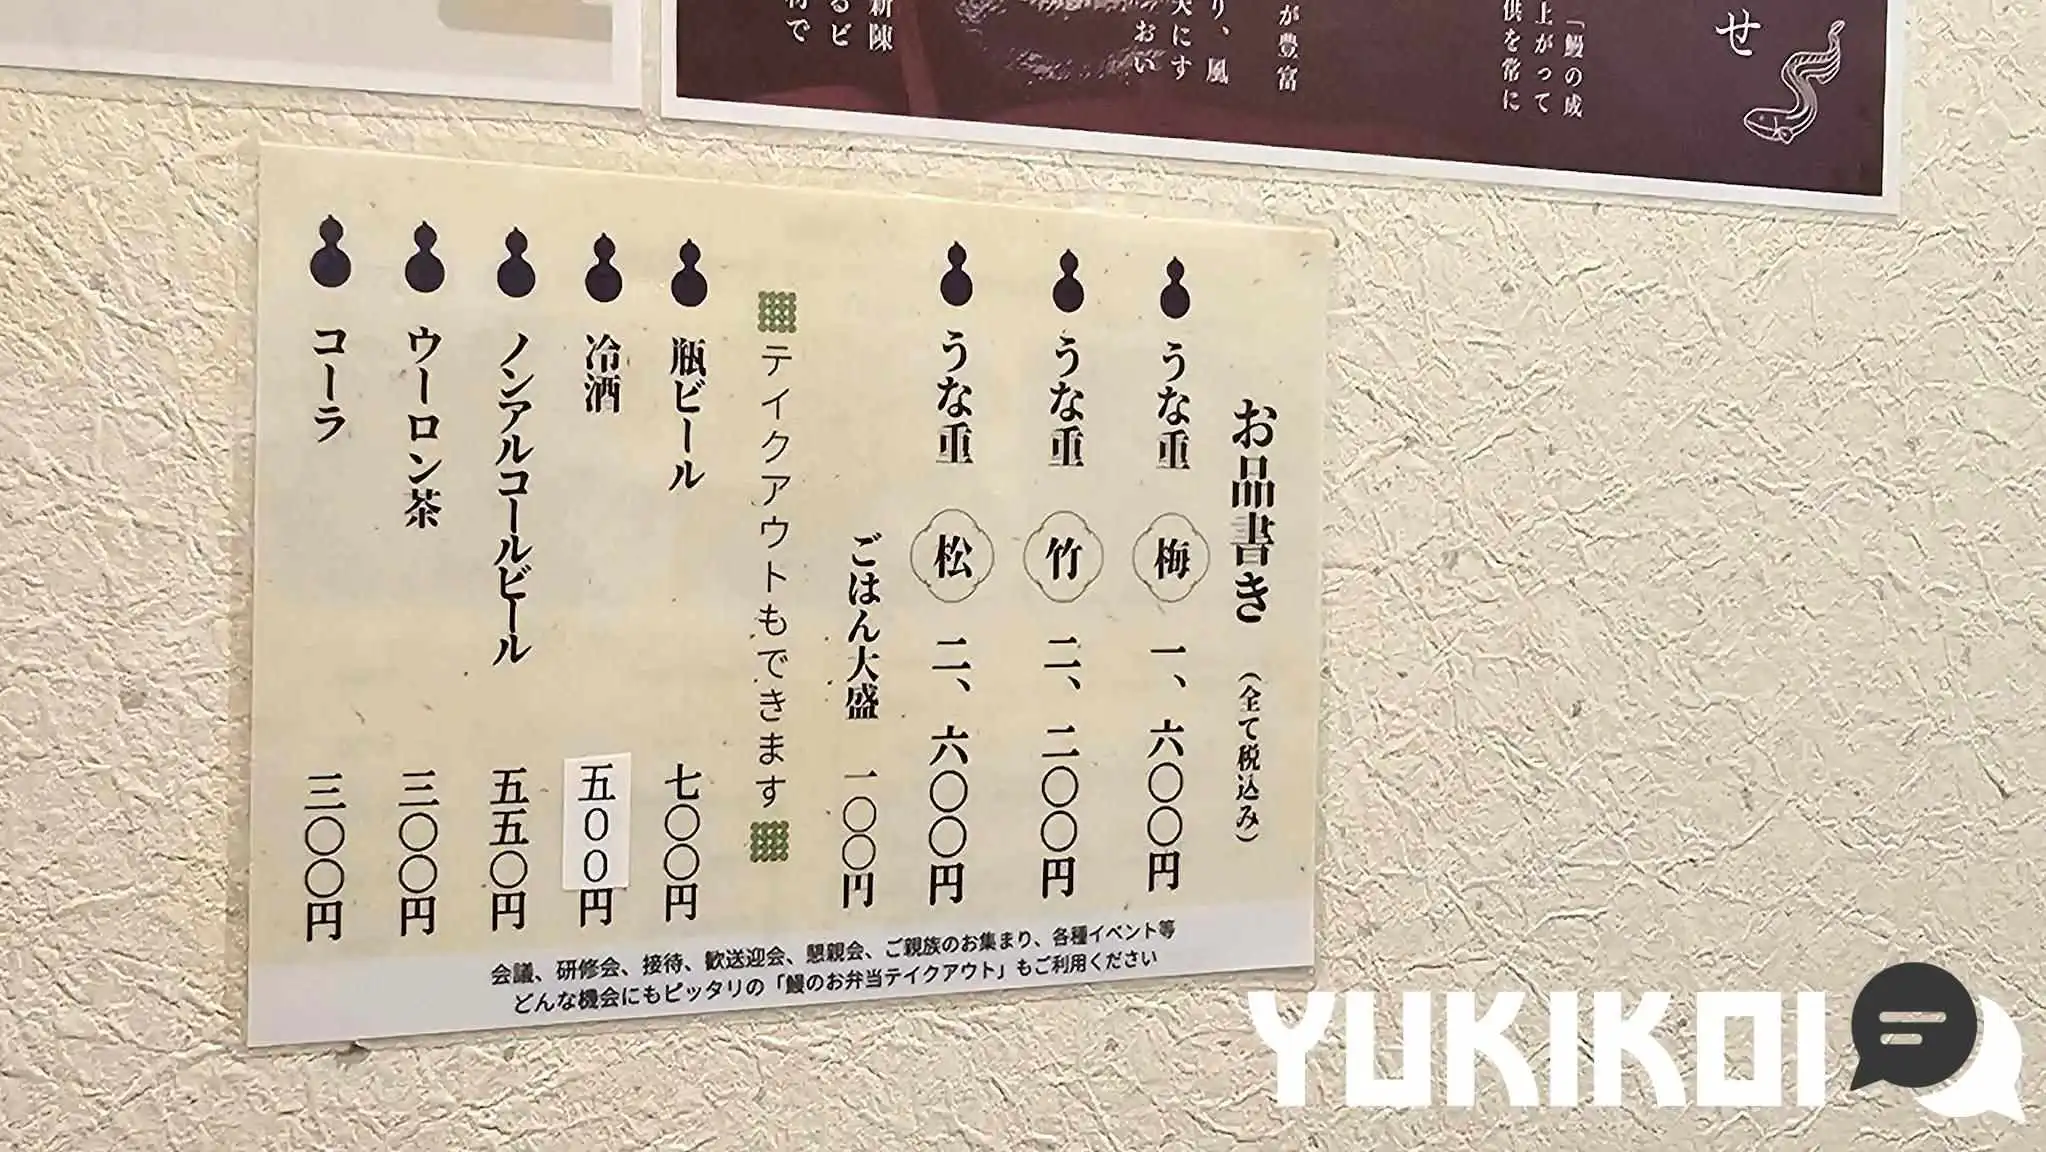 せ
「鰻の成
上がって
供を常に
が豊富
り、風
大にす
おい
新陳
るビ
材で
お品書き (全て税込み)
うな重 梅 一、六〇〇円
うな重 竹 二、二〇〇円
うな重 松 二、六〇〇円
ごはん大盛 一〇〇円
テイクアウトもできます
瓶ビール 七〇〇円
冷酒 五００円
ノンアルコールビール 五五〇円
ウーロン茶 三〇〇円
コーラ 三〇〇円
会議、研修会、接待、歓送迎会、懇親会、ご親族のお集まり、各種イベント等
どんな機会にもピッタリの「鰻のお弁当テイクアウト」もご利用ください
YUKIKOI